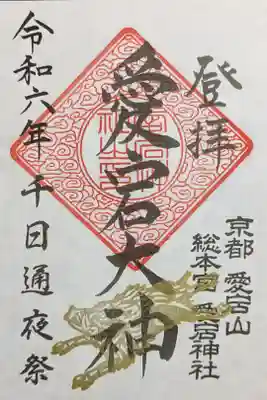 登拝
愛宕大神
令和六年 千日通夜祭
京都 愛宕山
総本宮 愛宕神社